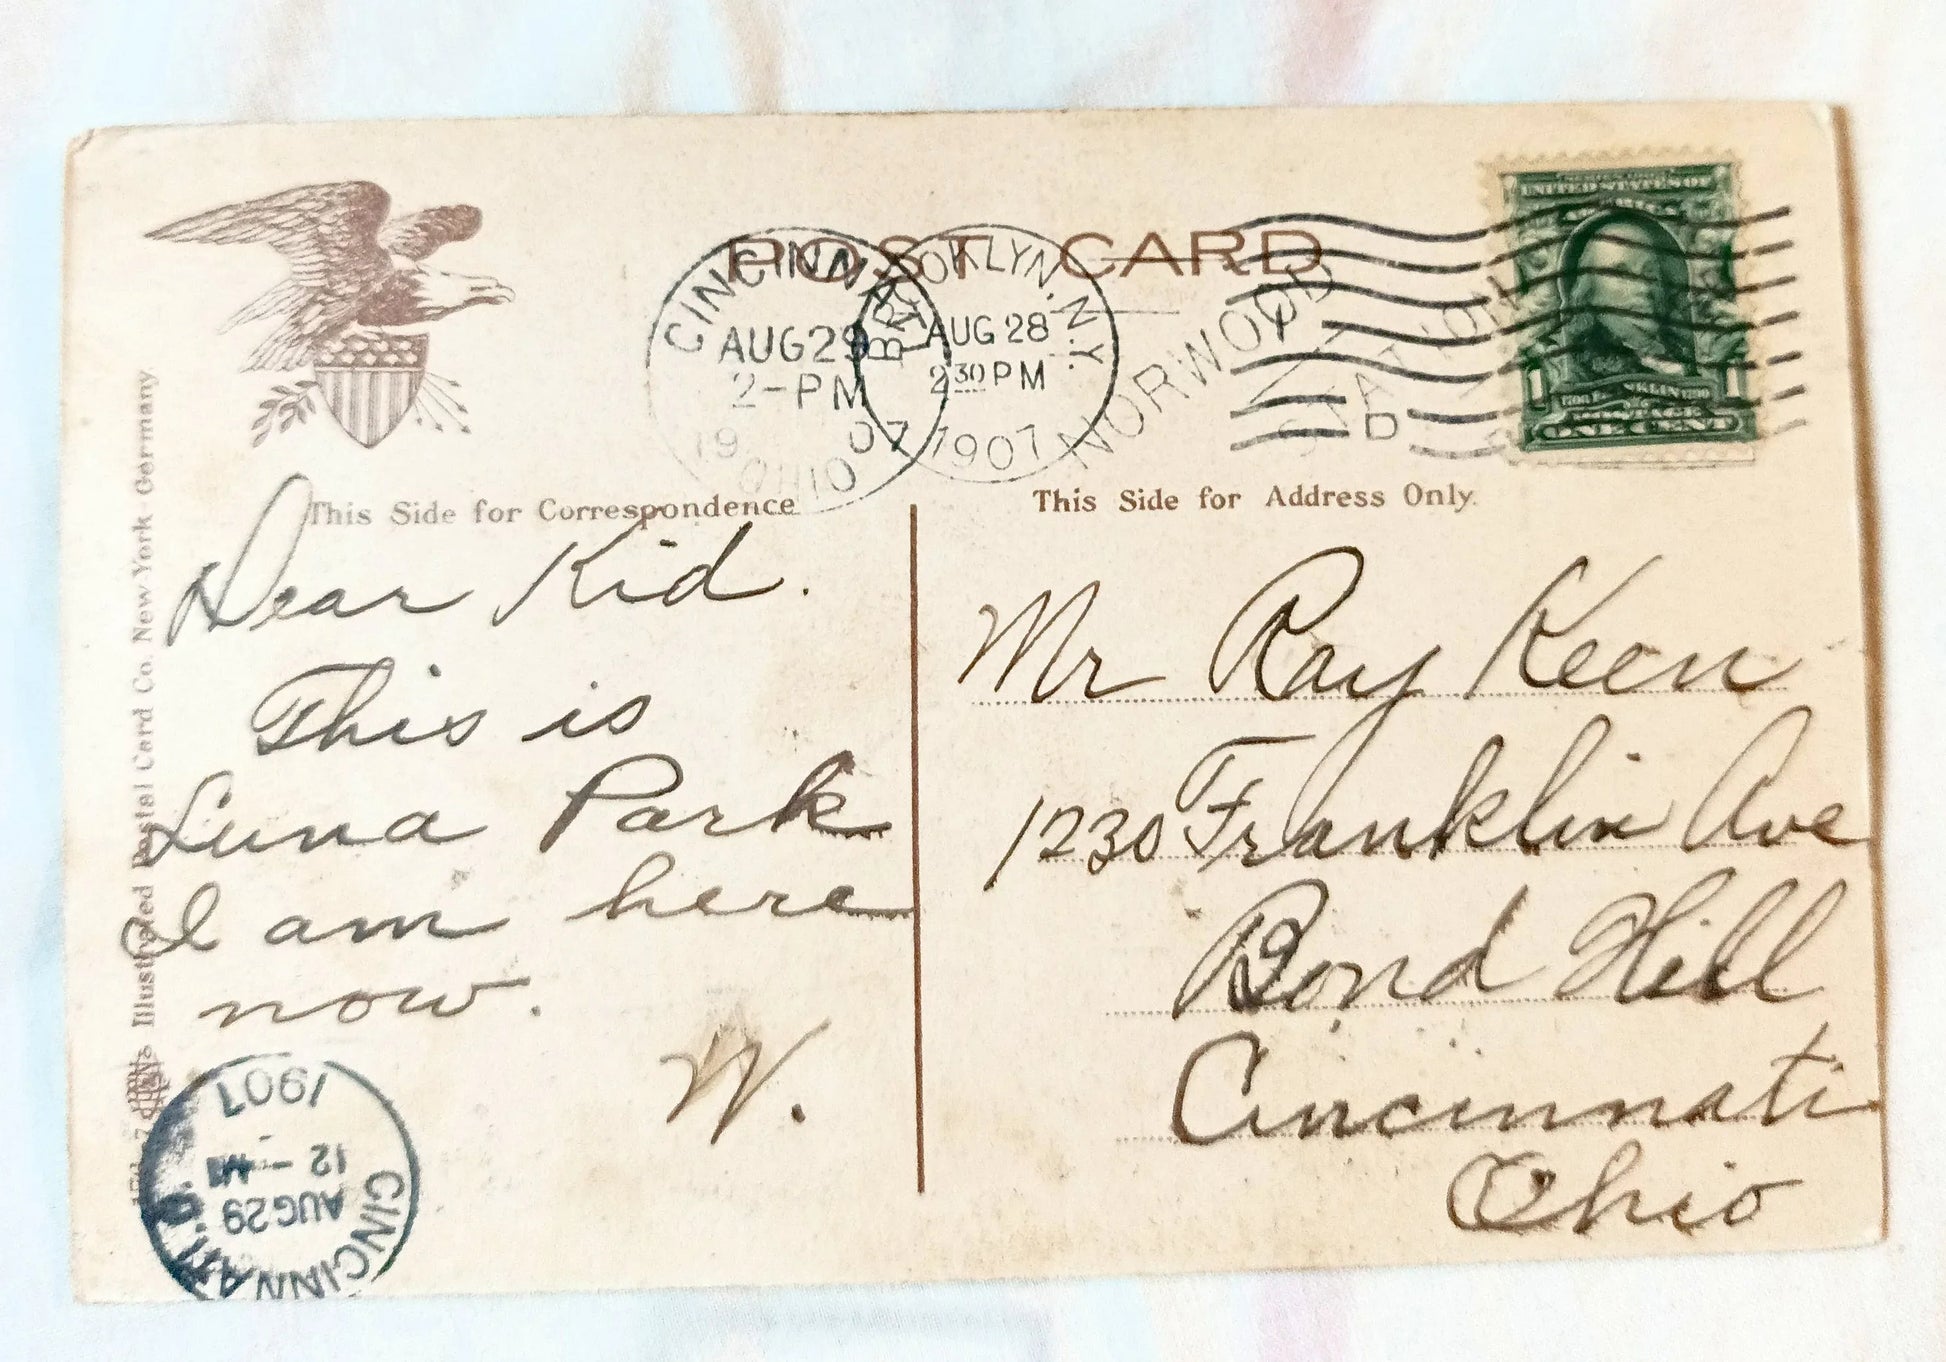 POST CARD
CINCINNATI
AUG 29
2-PM
19 07
OHIO
BROOKLYN, N.Y.
AUG 28
2 30 PM
1907
NORWOOD
STATION
D
UNITED STATES OF
AMERICA
1 1
FRANKLIN
POSTAGE
ONE CENT
This Side for Correspondence
Dear Kid.
This is
Luna Park
I am here
now.
W.
This Side for Address Only.
Mr Ray Keen
1230 Franklin Ave
Bond Hill
Cincinnati
Ohio
Illustrated Postal Card Co. New York Germany
CINCINNATI, O.
AUG 29
12 - M
1907